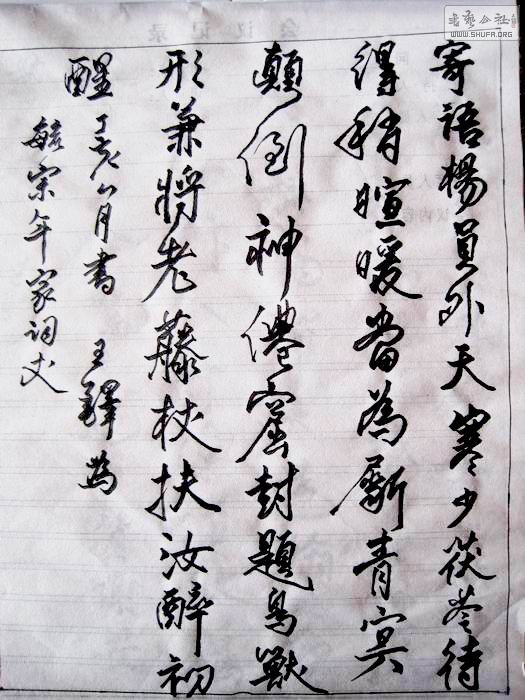 寄语楊員外天寒少茯苓待
得稍暄暖當為劚青冥
顛倒神僊窟封題鳥獸
形兼將老藤杖扶汝醉初
醒 丁亥八月書 王鐸為
毓宗年家詞丈
書藝公社
WWW.SHUFA.ORG